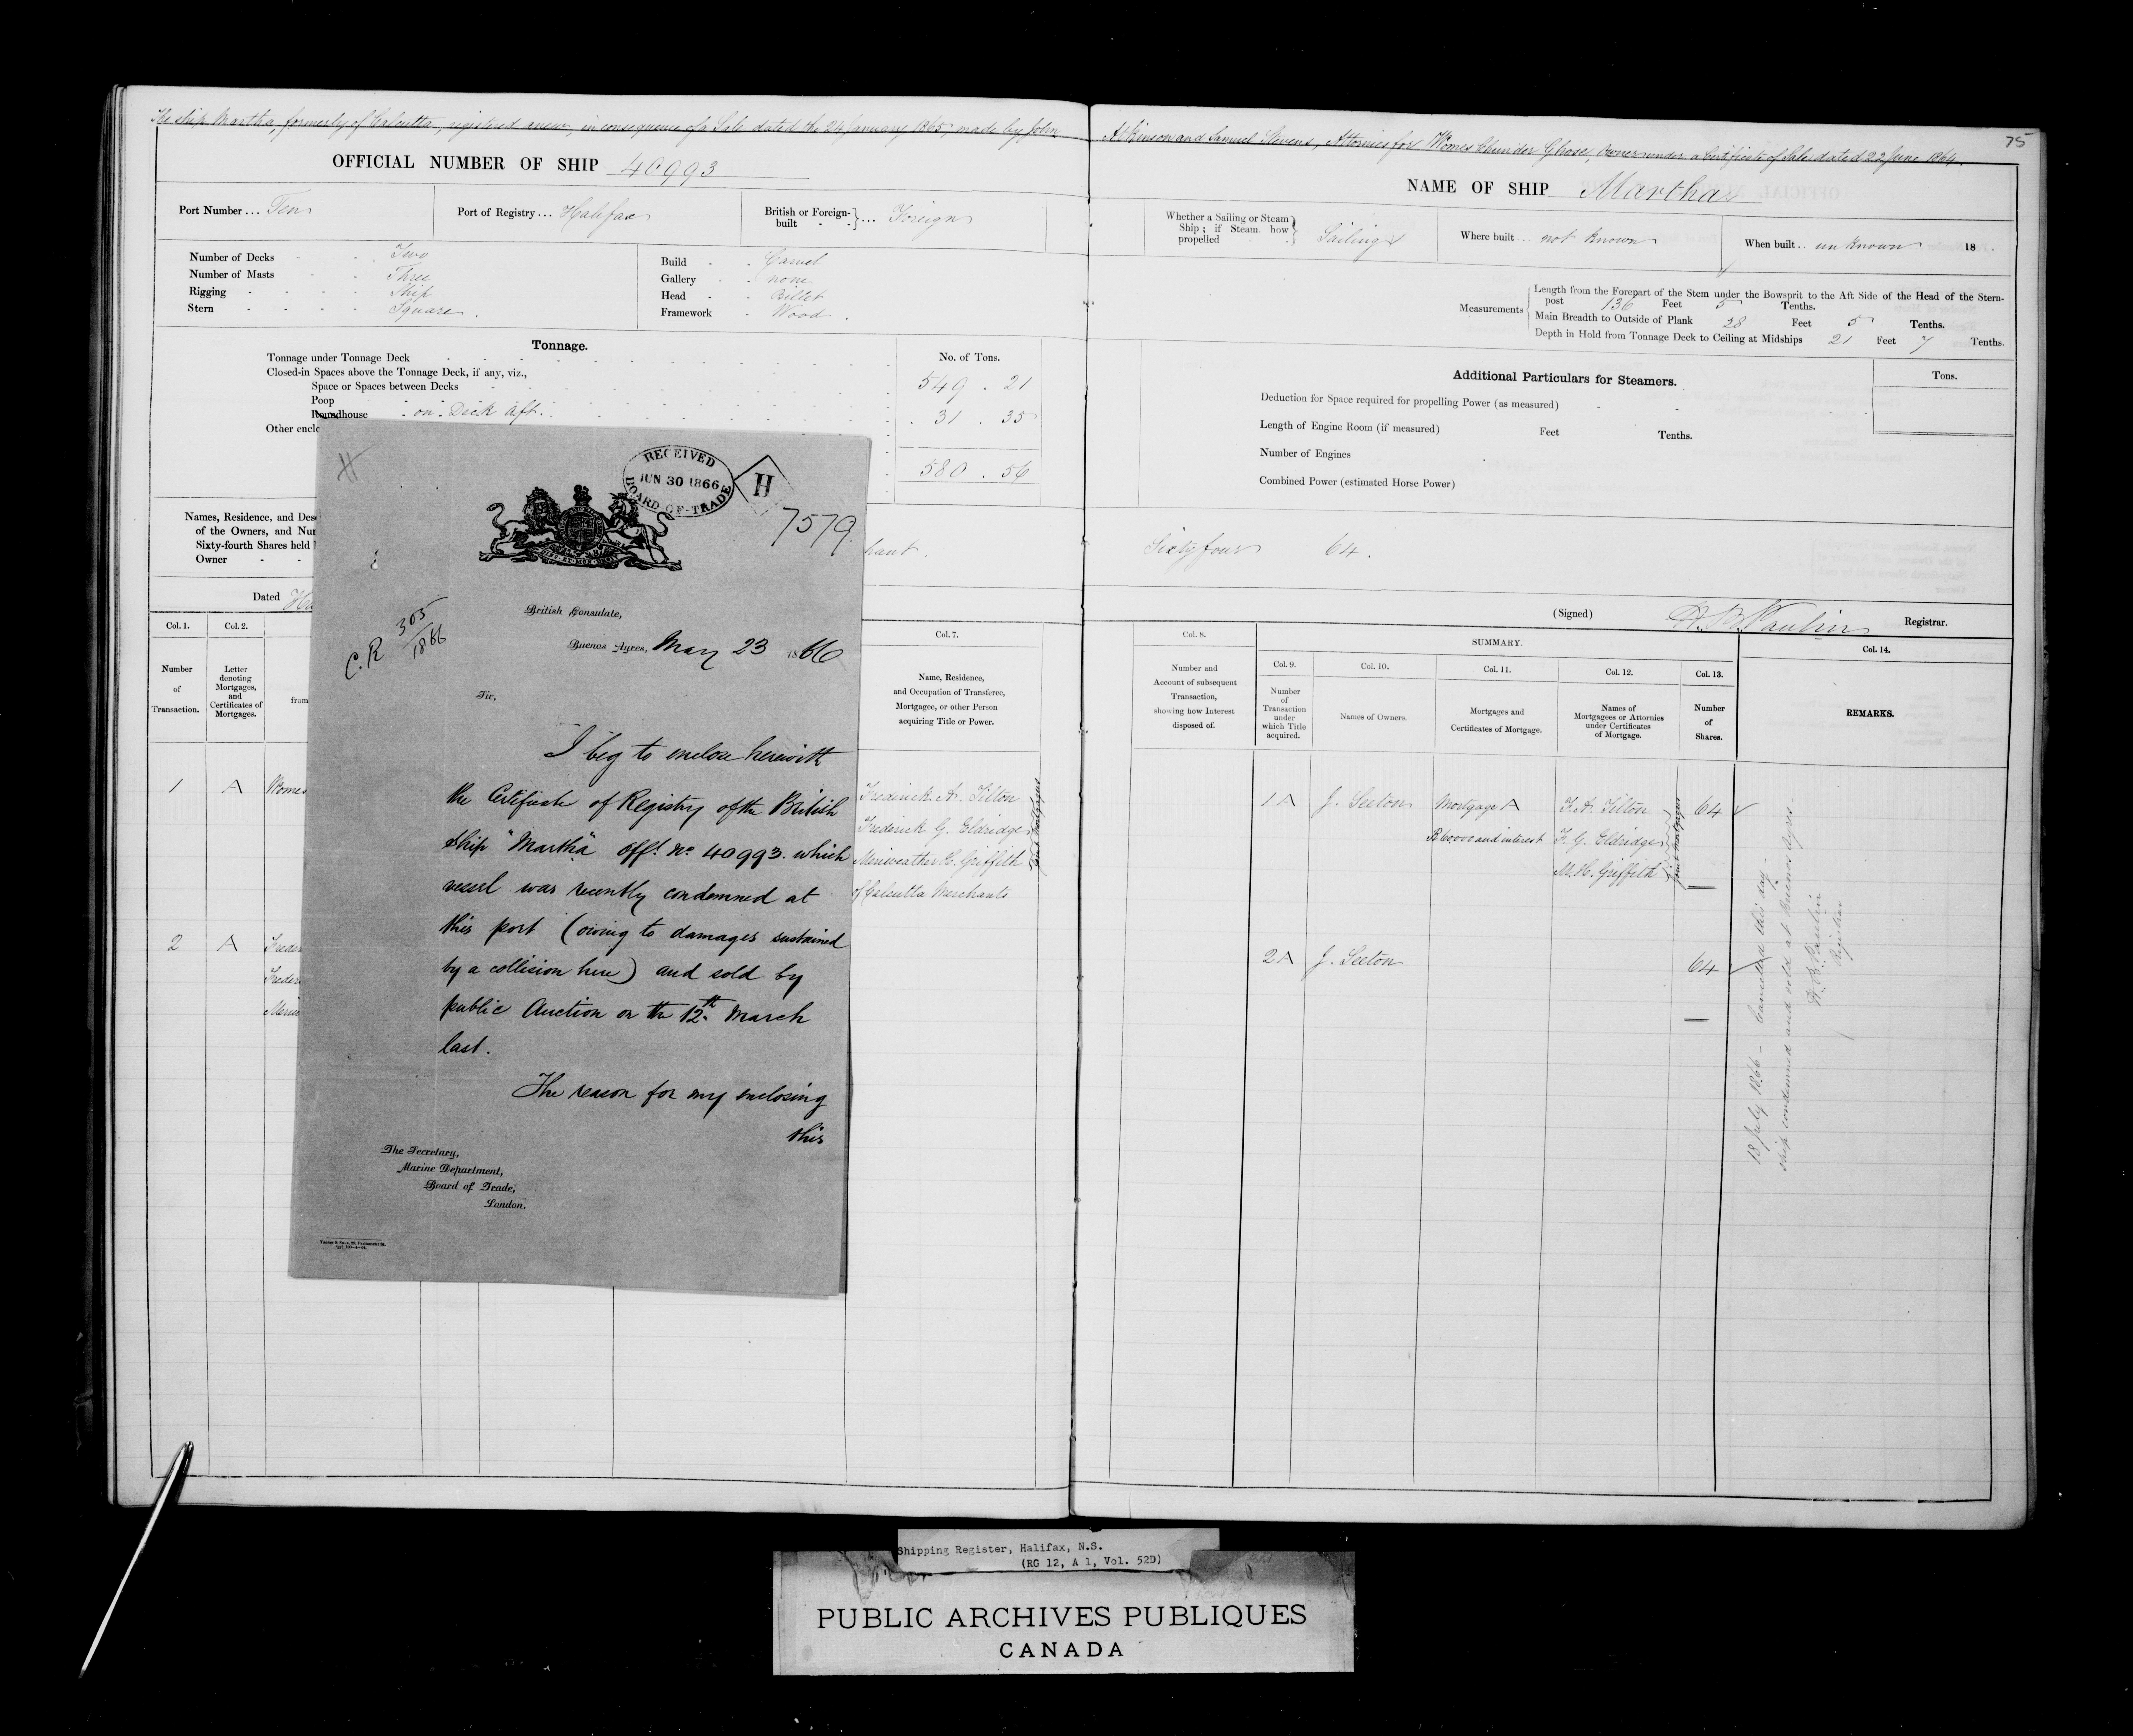 The ship Martha, formerly of Calcutta, registered anew, in consequence of a Sale dated the 24 January 1865, made by John
OFFICIAL NUMBER OF SHIP 40993
Port Number... Ten
Port of Registry... Halifax
British or Foreign-built } ... Foreign
Number of Decks Two
Number of Masts Three
Rigging Ship
Stern Square.
Build Carvel
Gallery none
Head Billet
Framework Wood.
Tonnage.
No. of Tons.
Tonnage under Tonnage Deck
Closed-in Spaces above the Tonnage Deck, if any, viz.,
Space or Spaces between Decks 549 . 21
Poop
Roundhouse on Deck aft. 31 . 35
Other enclo
580 . 56
Names, Residence, and Des
of the Owners, and Nu
Sixty-fourth Shares held
Owner
hant.
Dated
Col. 1.
Col. 2.
Col. 7.
Number
of
Transaction.
Letter
denoting
Mortgages,
and
Certificates of
Mortgages.
from
Name, Residence,
and Occupation of Transferee,
Mortgagee, or other Person
acquiring Title or Power.
1 A Womes
Frederick A. Tilton
Frederick G. Eldridge
Meriweather H. Griffith
of Calcutta Merchants
Joint Mortgagees
2 A Freder
Freder
Meriw
H
RECEIVED
JUN 30 1866
BOARD OF TRADE
H
7579.
C.R 305/1866
British Consulate,
Buenos Ayres, May 23 1866
Sir,
I beg to enclose herewith
the Certificate of Registry of the British
Ship "Martha" Offl. No. 40993. which
vessel was recently condemned at
this port (owing to damages sustained
by a collision here) and sold by
public Auction on the 12th March
last.
The reason for my enclosing
this
The Secretary,
Marine Department,
Board of Trade,
London.
75
Atkinson and Samuel Stevens, Attornies for Womes Chunder Ghose, Owner under a Certificate of Sale dated 22 June 1864.
NAME OF SHIP Martha
Whether a Sailing or Steam
Ship; if Steam, how
propelled } Sailing
Where built... not known
When built.. unknown 18 .
Measurements
Length from the Forepart of the Stem under the Bowsprit to the Aft Side of the Head of the Stern-
post 136 Feet 5 Tenths.
Main Breadth to Outside of Plank 28 Feet 5 Tenths.
Depth in Hold from Tonnage Deck to Ceiling at Midships 21 Feet 7 Tenths.
Additional Particulars for Steamers.
Tons.
Deduction for Space required for propelling Power (as measured)
Length of Engine Room (if measured) Feet Tenths.
Number of Engines
Combined Power (estimated Horse Power)
Sixty four 64.
(Signed) H. B. Paulin Registrar.
Col. 8.
SUMMARY.
Col. 14.
Col. 9.
Col. 10.
Col. 11.
Col. 12.
Col. 13.
Number and
Account of subsequent
Transaction,
showing how Interest
disposed of.
Number
of
Transaction
under
which Title
acquired.
Names of Owners.
Mortgages and
Certificates of Mortgage.
Names of
Mortgagees or Attornies
under Certificates
of Mortgage.
Number
of
Shares.
REMARKS.
1 A J. Seeton Mortgage A F. A. Tilton 64
R 60000 and interest F. G. Eldridge
M. H. Griffith
Joint Mortgagees
2 A J. Seeton 64
13 July 1866 - Cancelled this day -
ship condemned and sold at Buenos Ayres.
H. B. Paulin
Registrar
Shipping Register, Halifax, N.S.
(RG 12, A 1, Vol. 52D)
PUBLIC ARCHIVES PUBLIQUES
CANADA